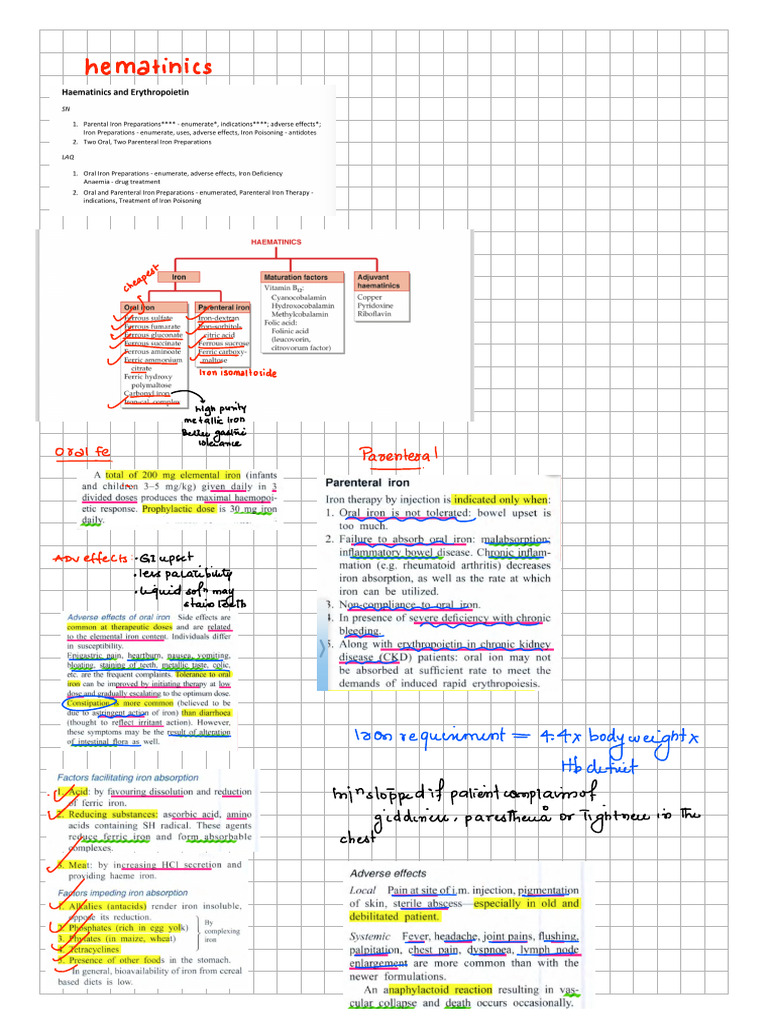 hematinics
Haematinics and Erythropoietin
SN
1. Parental Iron Preparations**** - enumerate*, indications****; adverse effects*;
Iron Preparations - enumerate, uses, adverse effects, Iron Poisoning - antidotes
2. Two Oral, Two Parenteral Iron Preparations
LAQ
1. Oral Iron Preparations - enumerate, adverse effects, Iron Deficiency
Anaemia - drug treatment
2. Oral and Parenteral Iron Preparations - enumerated, Parenteral Iron Therapy -
indications, Treatment of Iron Poisoning
HAEMATINICS
cheapest
Iron
Oral iron
Ferrous sulfate
Ferrous fumarate
Ferrous gluconate
Ferrous succinate
Ferrous aminoate
Ferric ammonium
citrate
Ferric hydroxy
polymaltose
Carbonyl iron
Iron-cal. complex
Parenteral iron
Iron-dextran
Iron-sorbitol-
citric acid
Ferrous sucrose
Ferric carboxy-
maltose
Iron isomaltoside
Maturation factors
Vitamin B12:
Cyanocobalamin
Hydroxocobalamin
Methylcobalamin
Folic acid:
Folinic acid
(leucovorin,
citrovorum factor)
Adjuvant
haematinics
Copper
Pyridoxine
Riboflavin
high purity
metallic iron
Better gastric
tolerance
Oral fe
A total of 200 mg elemental iron (infants
and children 3–5 mg/kg) given daily in 3
divided doses produces the maximal haemopoi-
etic response. Prophylactic dose is 30 mg iron
daily.
Adv effects • GI upset
• less palatibility
• liquid soln may
stain teeth
Adverse effects of oral iron Side effects are
common at therapeutic doses and are related
to the elemental iron content. Individuals differ
in susceptibility.
Epigastric pain, heartburn, nausea, vomiting,
bloating, staining of teeth, metallic taste, colic,
etc. are the frequent complaints. Tolerance to oral
iron can be improved by initiating therapy at low
dose and gradually escalating to the optimum dose.
Constipation is more common (believed to be
due to astringent action of iron) than diarrhoea
(thought to reflect irritant action). However,
these symptoms may be the result of alteration
of intestinal flora as well.
Factors facilitating iron absorption
1. Acid: by favouring dissolution and reduction
of ferric iron.
2. Reducing substances: ascorbic acid, amino
acids containing SH radical. These agents
reduce ferric iron and form absorbable
complexes.
3. Meat: by increasing HCl secretion and
providing haeme iron.
Factors impeding iron absorption
1. Alkalies (antacids) render iron insoluble,
oppose its reduction.
2. Phosphates (rich in egg yolk)
3. Phytates (in maize, wheat)
4. Tetracyclines
By
complexing
iron
5. Presence of other foods in the stomach.
In general, bioavailability of iron from cereal
based diets is low.
Parenteral
Parenteral iron
Iron therapy by injection is indicated only when:
1. Oral iron is not tolerated: bowel upset is
too much.
2. Failure to absorb oral iron: malabsorption;
inflammatory bowel disease. Chronic inflam-
mation (e.g. rheumatoid arthritis) decreases
iron absorption, as well as the rate at which
iron can be utilized.
3. Non-compliance to oral iron.
4. In presence of severe deficiency with chronic
bleeding.
5. Along with erythropoietin in chronic kidney
disease (CKD) patients: oral ion may not
be absorbed at sufficient rate to meet the
demands of induced rapid erythropoiesis.
Iron requirement = 4.4 x body weight x
Hb deficit
Inj stopped if patient complains of
giddiness, paresthesia or Tightness in the
chest
Adverse effects
Local Pain at site of i.m. injection, pigmentation
of skin, sterile abscess—especially in old and
debilitated patient.
Systemic Fever, headache, joint pains, flushing,
palpitation, chest pain, dyspnoea, lymph node
enlargement are more common than with the
newer formulations.
An anaphylactoid reaction resulting in vas-
cular collapse and death occurs occasionally.